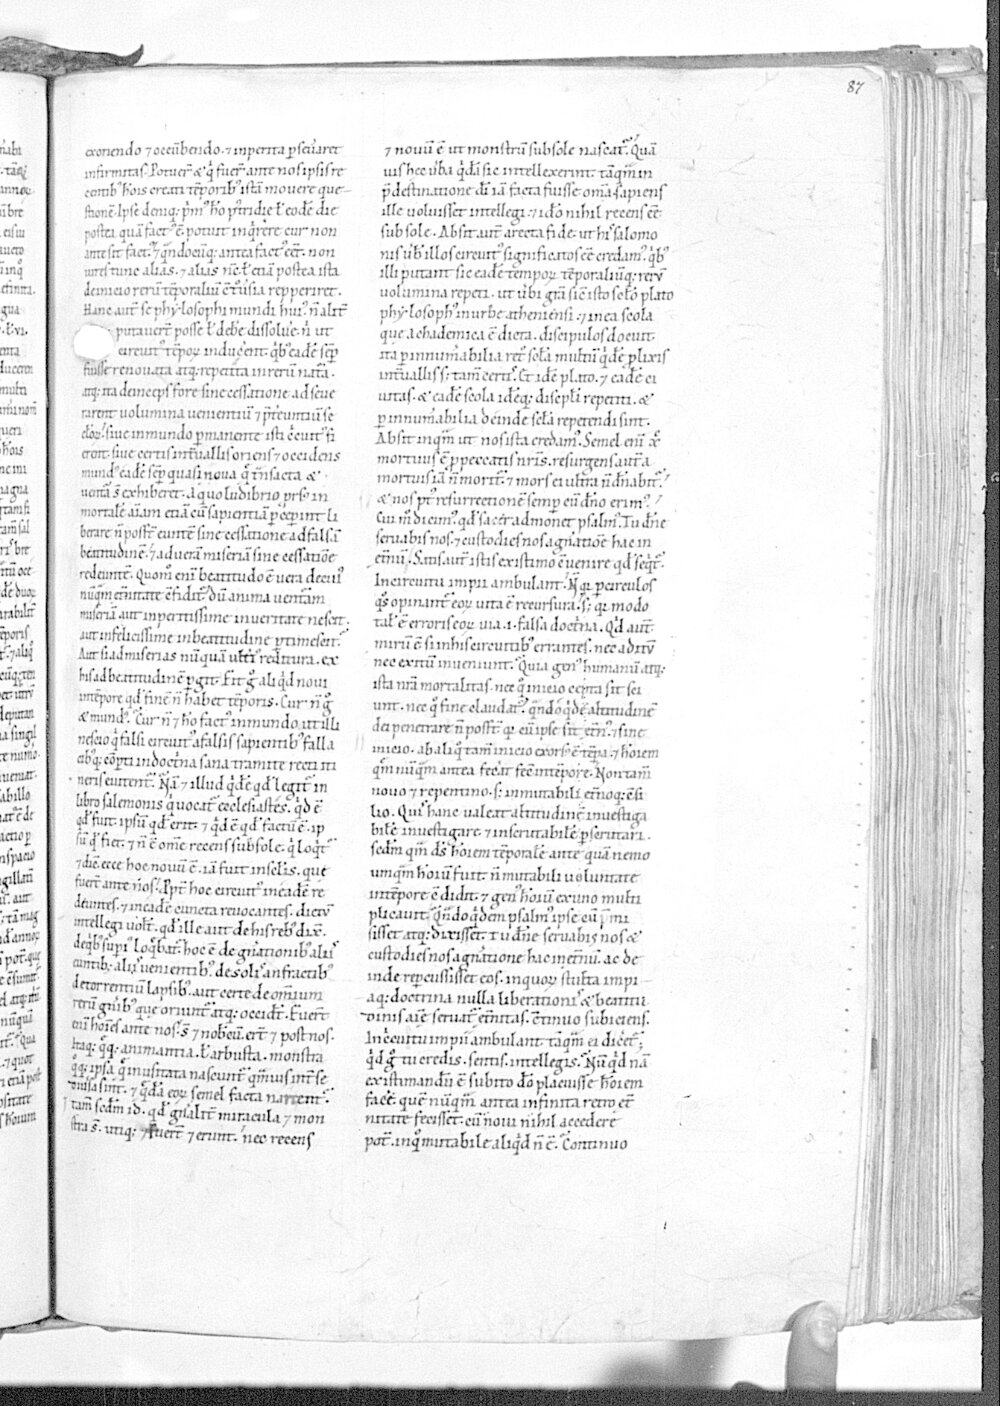 87
exoriendo ⁊ occūbendo. ⁊ inpenta ꝑseuaret
infirmitas. Potuer̄ & q̇ fuer̄ ante nos ipsis re
centib; hōis creati tēporib; istā mouere que
stionē. Ipse deniq; pm̄ hō pridie ł eodē die
postea quā fact; ē. potuit inq̇rere cur non
ante sit fact;. ⁊ qn̄docūq; antea fact; cēt. non
deinicio rerū tēporaliū
Hanc aut̄ se phylosophi mundi hui;
putauer̄t posse ł debē dissoluē. n̄ ut
circuit; tēpoꝝ inducer̄nt. qb; eadē sēp
fuisse renouata atq; repetita in rerū nat̄a.
atq; ita deinceps fore sine cessatione adseue
rarent uolumina uenientiū ⁊ p̄tereuntiū se
cłoꝝ. siue in mundo ꝑmanente isti circuit; fi
erēt. siue certis int̄uallis oriens ⁊ occidens
mund; eadē sēp quasi noua
uent̄a s̄ exhiberet. a quo ludibrio prs; in
mortalē aīam etiā cū sapientiā ꝑcepint li
berare n̄ poss̄t eunte sine cessatione ad falsā
beatitudinē. ⁊ ad uerā miseriā sine cessatiōe
redeuntē. Quom̄ enī beatitudo ē uera de cui;
nūqm̄ et̄nitate c̄fidit;. dū anima uent̄am
miseriā aut inpertissime in ueritate nescit.
aut infelicissime in beatitudine ꝑtimescit.
Aut si ad miserias nūquā ult̄i; reditura. ex
his ad beatitudinē ꝑgit. Fit ḡ aliq̇d noui
in tēpore qd̄ finē n̄ habet tēporis. Cur n̄ ḡ
& mund;. Cur n̄ ⁊ hō fact; in mundo. ut illi
nescio q̇ falsi circuit; a falsis sapientib; falla
cib;q; cōpti in doct̄na sana tramite recti iti
neris euitent̄. Nā ⁊ illud q̇dē qd̄ legit̄ in
libro salemonis q̇ uocat̄ ecclesiastes. q̇d ē
qd̄ fuit. ipsū qd̄ erit. ⁊ q̇d ē qd̄ factū ē. ip
sū qd̄ fiet. ⁊ n̄ ē om̄e recens sub sole. q̇ loq̇t̄
⁊ diē ecce hoc nouū ē. iā fuit in sclis. que
fuer̄t ante nos. Ppt̄ hoc circuit; in eadē re
deuntes. ⁊ in eadē cuncta reuocantes. dictū
intellegi uolt̄. qd̄ ille aut de his reb; dix̄.
de qb; supi; loq̇bat̄. hoc ē de gn̄ationib; aliis
euntib;. aliis uenientib;. de solis anfractib;.
de torrentiū lapsib;. aut certe de om̄ium
rerū gn̄ib; que oriunt̄ atq; occidt̄. Fuer̄t
enī hoīes ante nos. s̄ ⁊ nobcū. er̄t ⁊ post nos.
Itaq; q̇q; animantia. ł arbusta. monstra
q̇q; ipsa q̇ inusitata nascunt̄. qm̄uis int̄ se
diuisa sint. ⁊ q̇dā eoꝝ semel facta narrent̄.
tam̄ scd̄m id. qd̄ gn̄alit̄ miracula ⁊ mon
stra s̄. utiq; ⁊ fuer̄t ⁊ erunt. nec recens
⁊ nouū ē ut monstrū sub sole nascat̄. Quā
uis hec ūba q̇dā sic intellexerint. tāqm̄ in
p̄destinatione dī iā facta fuisse om̄a. sapiens
ille uoluisset intellegi. ⁊ idō nihil recens cē
sub sole. Absit aut̄ a recta fide. ut his salomo
nis ūb. illos circuit; significatos cē credam;. q̇b;
illi putant sic eadē tempoꝝ tēporaliūq; rerū
uolumina repeti. ut ūbi gr̄a sic isto scło plato
phylosoph; in urbe atheniensi. ⁊ in ea scola
que achademica ē dicta. discipulos docuit.
ita ꝑ innum̄abilia ret̄ scła multū q̇dē ꝓlixis
int̄uallis s; tam̄ certis. Et idē plato. ⁊ eadē ci
uitas. & eadē scola idēq; discipłi repetiti. &
ꝑ innum̄abilia deinde scła repetendi sint.
Absit inqm̄ ut nos ista credam;. Semel eni xp̄
mortuus ē ꝓ peccatis nr̄is. resurgens aut̄ a
mortuis iā n̄ morit̄. ⁊ mors ei ultra n̄ dn̄abit̄.
& nos pt; resurrectionē semp cū dn̄o erim;.
Cui m̄ dicim;. qd̄ sacer admonet psalm;. Tu dn̄e
seruabis nos. ⁊ custodies nos a gn̄atiōe hac in
et̄nū. Satis aut̄ istis existimo c̄uenire qd̄ seq̇t̄.
In circuitu impii ambulant. N̄ qr ꝑ circulos
q̇s opinant̄ eoꝝ uita ē recursura. s; qr modo
talˉ ē erroris eoꝝ uia. .i. falsa doct̄na. Qd̄ aut̄
mirū ē si in his circuitib; errantes. nec aditū
nec exitū inueniunt. Quia gen; humanū atq;
ista nr̄a mortalitas. nec q̇ inicio cepta sit sci
unt. nec q̇ fine claudat̄. qn̄do q̇dē altitudinē
dei penetrare n̄ poss̄t. qr cū ipse sit et̄n;. ⁊ sine
inicio. ab aliq̇ tam̄ inicio exors; ē tēpa. ⁊ hōiem
qm̄ nūqm̄ antea fecat fecit in tēpore. Non tam̄
nouo ⁊ repentino. s; inmutabili et̄noq; c̄si
lio. Quis hanc ualeat altitudinē inuestiga
bilē inuestigare. ⁊ inscrutabilē ꝑscrutari.
scd̄m qm̄ dš hōiem tēporalē ante quā nemo
umqm̄ hoīum fuit. n̄ mutabili uoluntate
in tēpore c̄didit. ⁊ gen; hoīum ex uno multi
plicauit. qn̄do q̇dem psalm; ipse cū p̄mi
sisset atq; dixisset. tu dn̄e seruabis nos &
custodies nos a gn̄atione hac in et̄nū. ac de
inde repercussisset eos. in quoꝝ stulta impi
aq; doctrina nulla liberationis & beatitu
dinis aīe seruat̄ et̄nitas. c̄tinuo subiciens.
In circuitu impii ambulant. tāqm̄ ei dicet̄;
q̇d ḡ tu credis. sentis. intellegis. Nū q̇d nā
existimandū ē subito dō placuisse hōiem
facē. quē nūqm̄ antea infinita retro et̄
nitate fecisset. cū noui nihil accedere
pot̄. in q̇ mutabile aliq̇d n̄ ē. Continuo